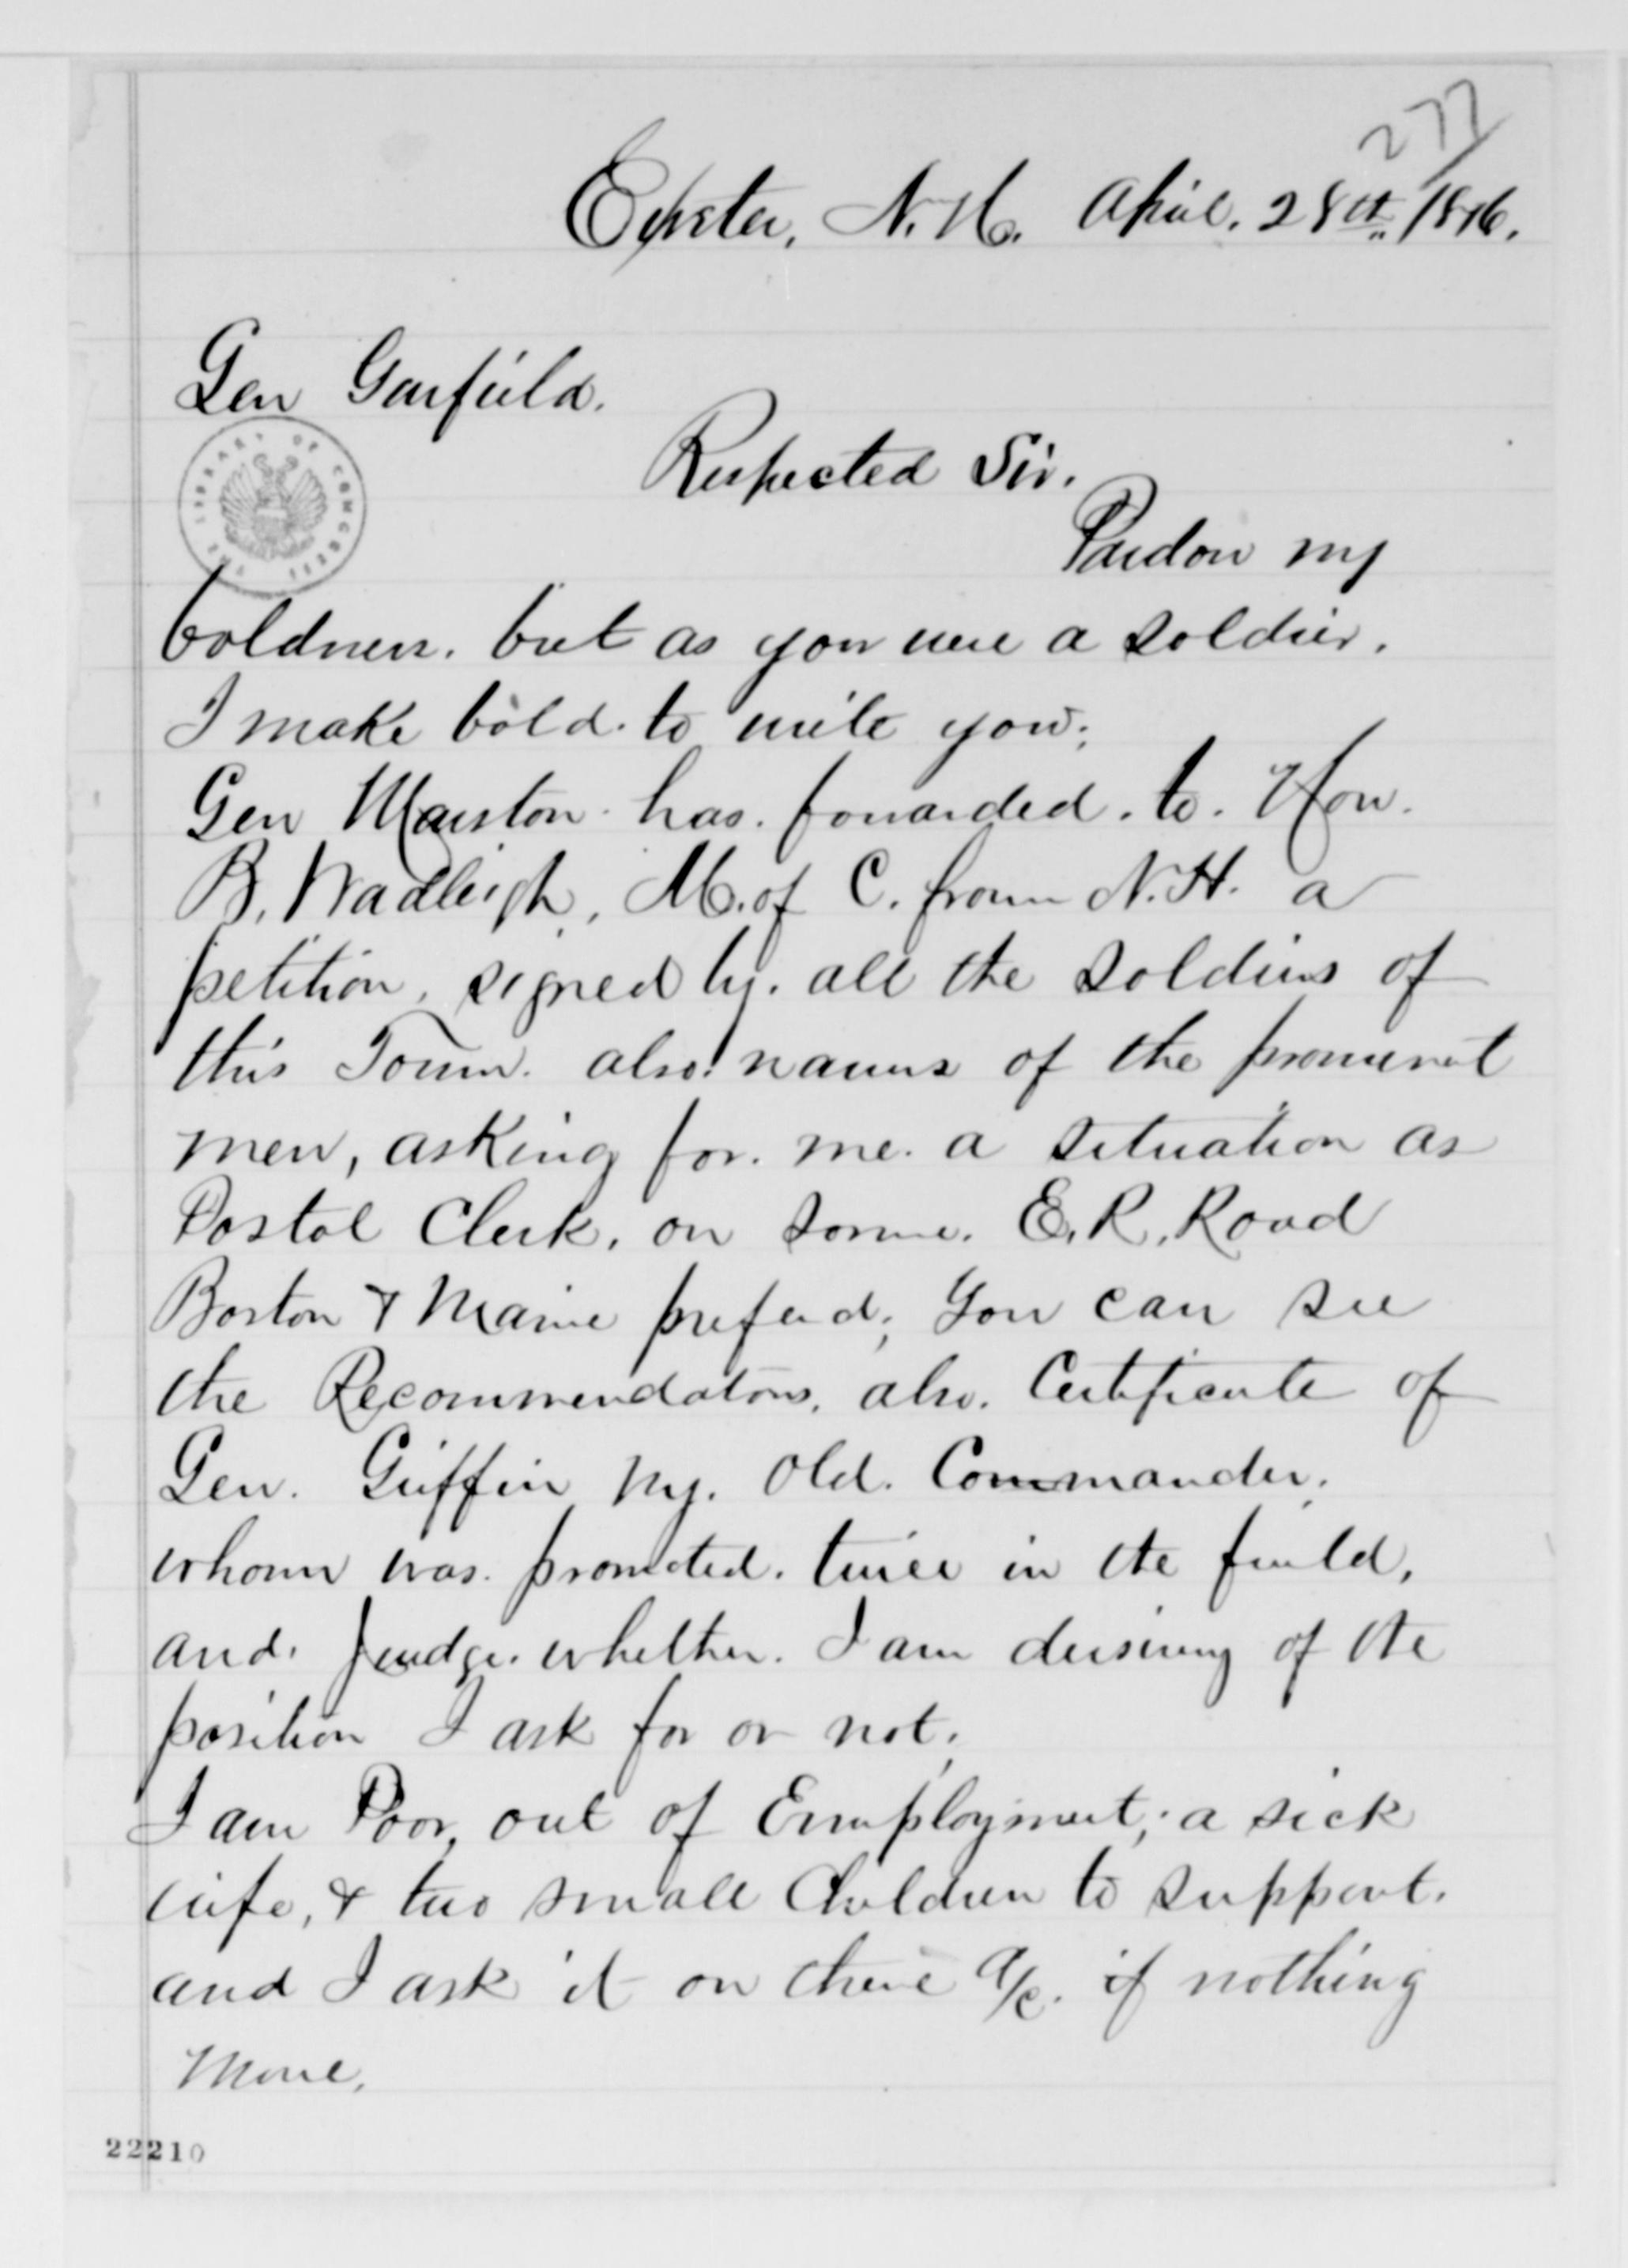 277
Exeter, N.H. April. 28th. 1876.
Gen Garfield.
THE LIBRARY OF CONGRESS
Respected Sir.
Pardon my
boldness. but as you were a soldier.
I make bold. to write you;
Gen Marston. has. forwarded. to. Hon.
B. Wadleigh, M. of C. from N.H. a
petition, signed by. all the soldiers of
this Town. also. names of the prominent
men, asking for. me. a situation as
Postal Clerk, on some. E.R. Road
Boston & Maine preferd; You can see
the Recommendatons, also. Certificate of
Gen. Griffin my. old. Commander,
whom was. promoted. twice in the field,
and. judge. whether. I am deserving of the
position I ask for or not;
I am Poor, out of Employment; a sick
wife, & two small Children to support.
and I ask it on there a/c. if nothing
more.
22210